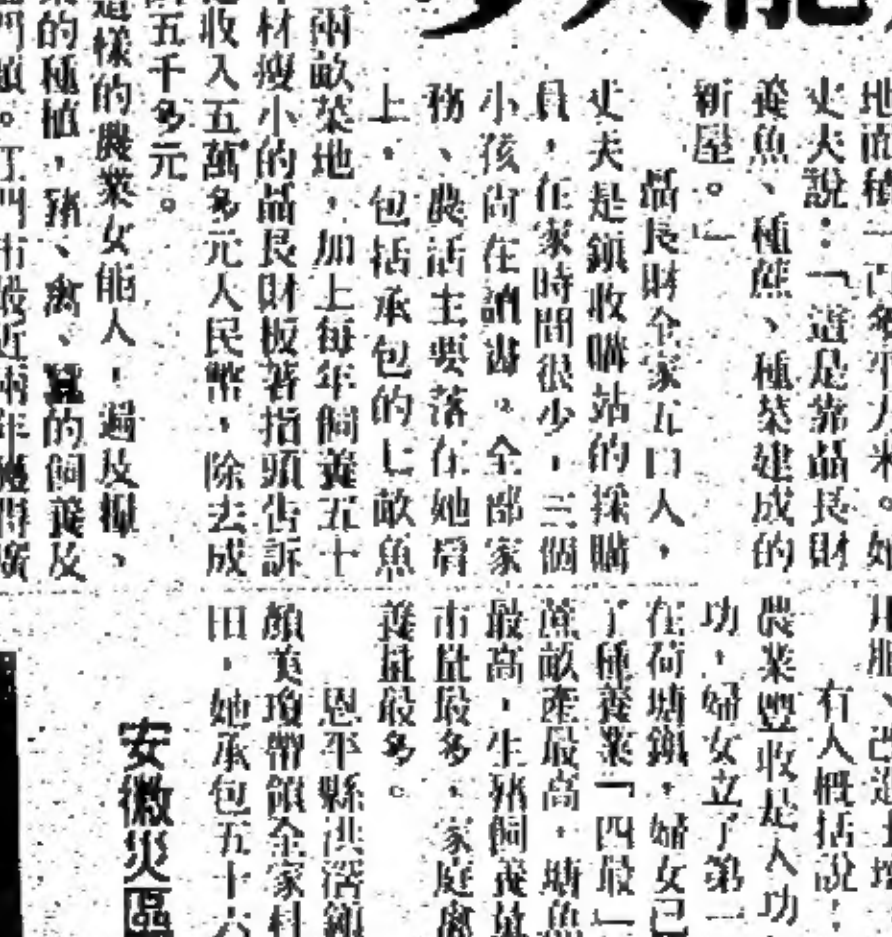 地面積一百多平方米。她
丈夫說：「這是靠品長財
養魚、種蔗、種菜建成的
新屋。」
品長財全家五口人，
丈夫是鎮收購站的採購
員，在家時間很少，三個
小孩尚在讀書。全部家
務、農活主要落在她肩
上，包括承包的七畝魚
兩畝菜地，加上每年飼養五十
材瘦小的品長財扳著指頭告訴
收入五萬多元人民幣，除去成
五千多元。
這樣的農業女能人，遍及糧、
的種植，豬、禽、蠶的飼養及
江門市最近兩年獲得廣
有人概括說：
農業豐收是人功
功，婦女立了第一
在荷塘鎮，婦女已
了種養業「四最」
蔗畝產最高，塘魚
最高，生豬飼養量
市量最多，家庭
養量最多。
恩平縣洪滘鎮
顏美瓊帶領全家科
田，她承包五十六
安徽災區